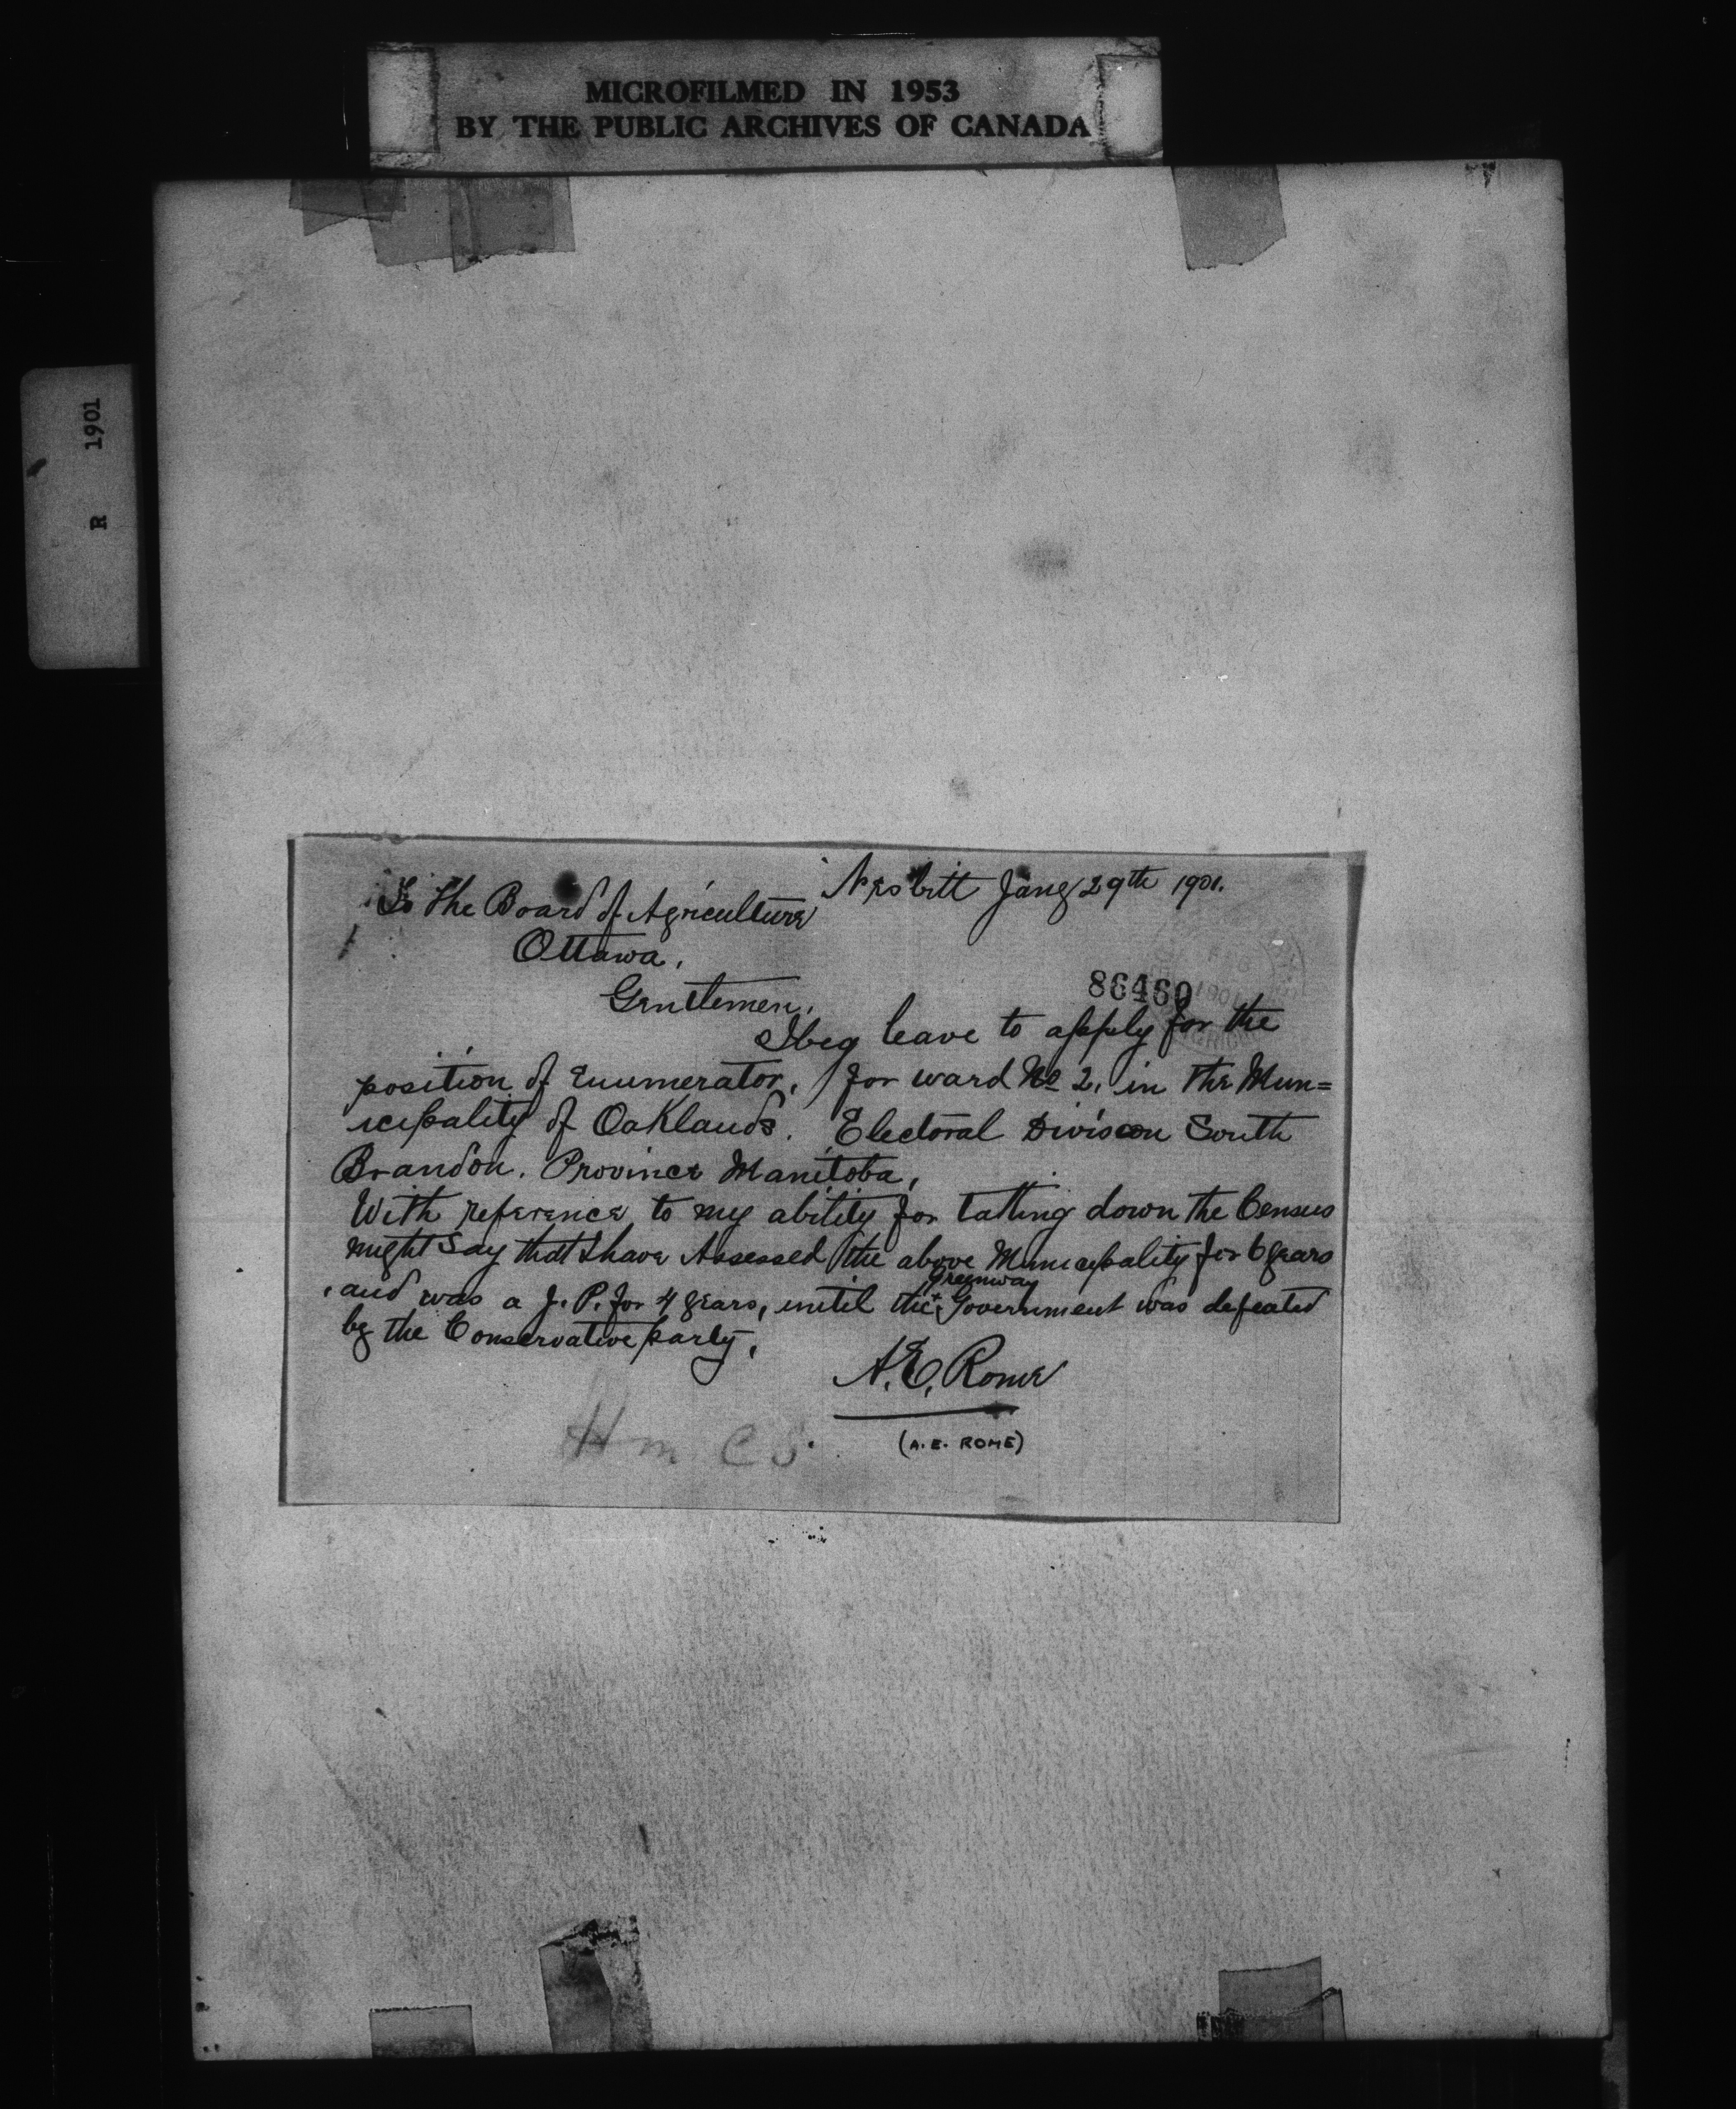 MICROFILMED IN 1953
BY THE PUBLIC ARCHIVES OF CANADA
R 1901
Nesbitt Jany 29th 1901.
To the Board of Agriculture
Ottawa,
Gentlemen,
86460
I beg leave to apply for the
position of Enumerator, for ward No 2, in the Mun=
icipality of Oaklands. Electoral Division South
Brandon. Province Manitoba,
With reference to my ability for tatting down the Census
might say that I have Assessed the above Municipality for 6 years
and was a J. P. for 4 years, until the Greenway Government was defeated
by the Conservative party,
A. E. Rome
(A. E. ROME)